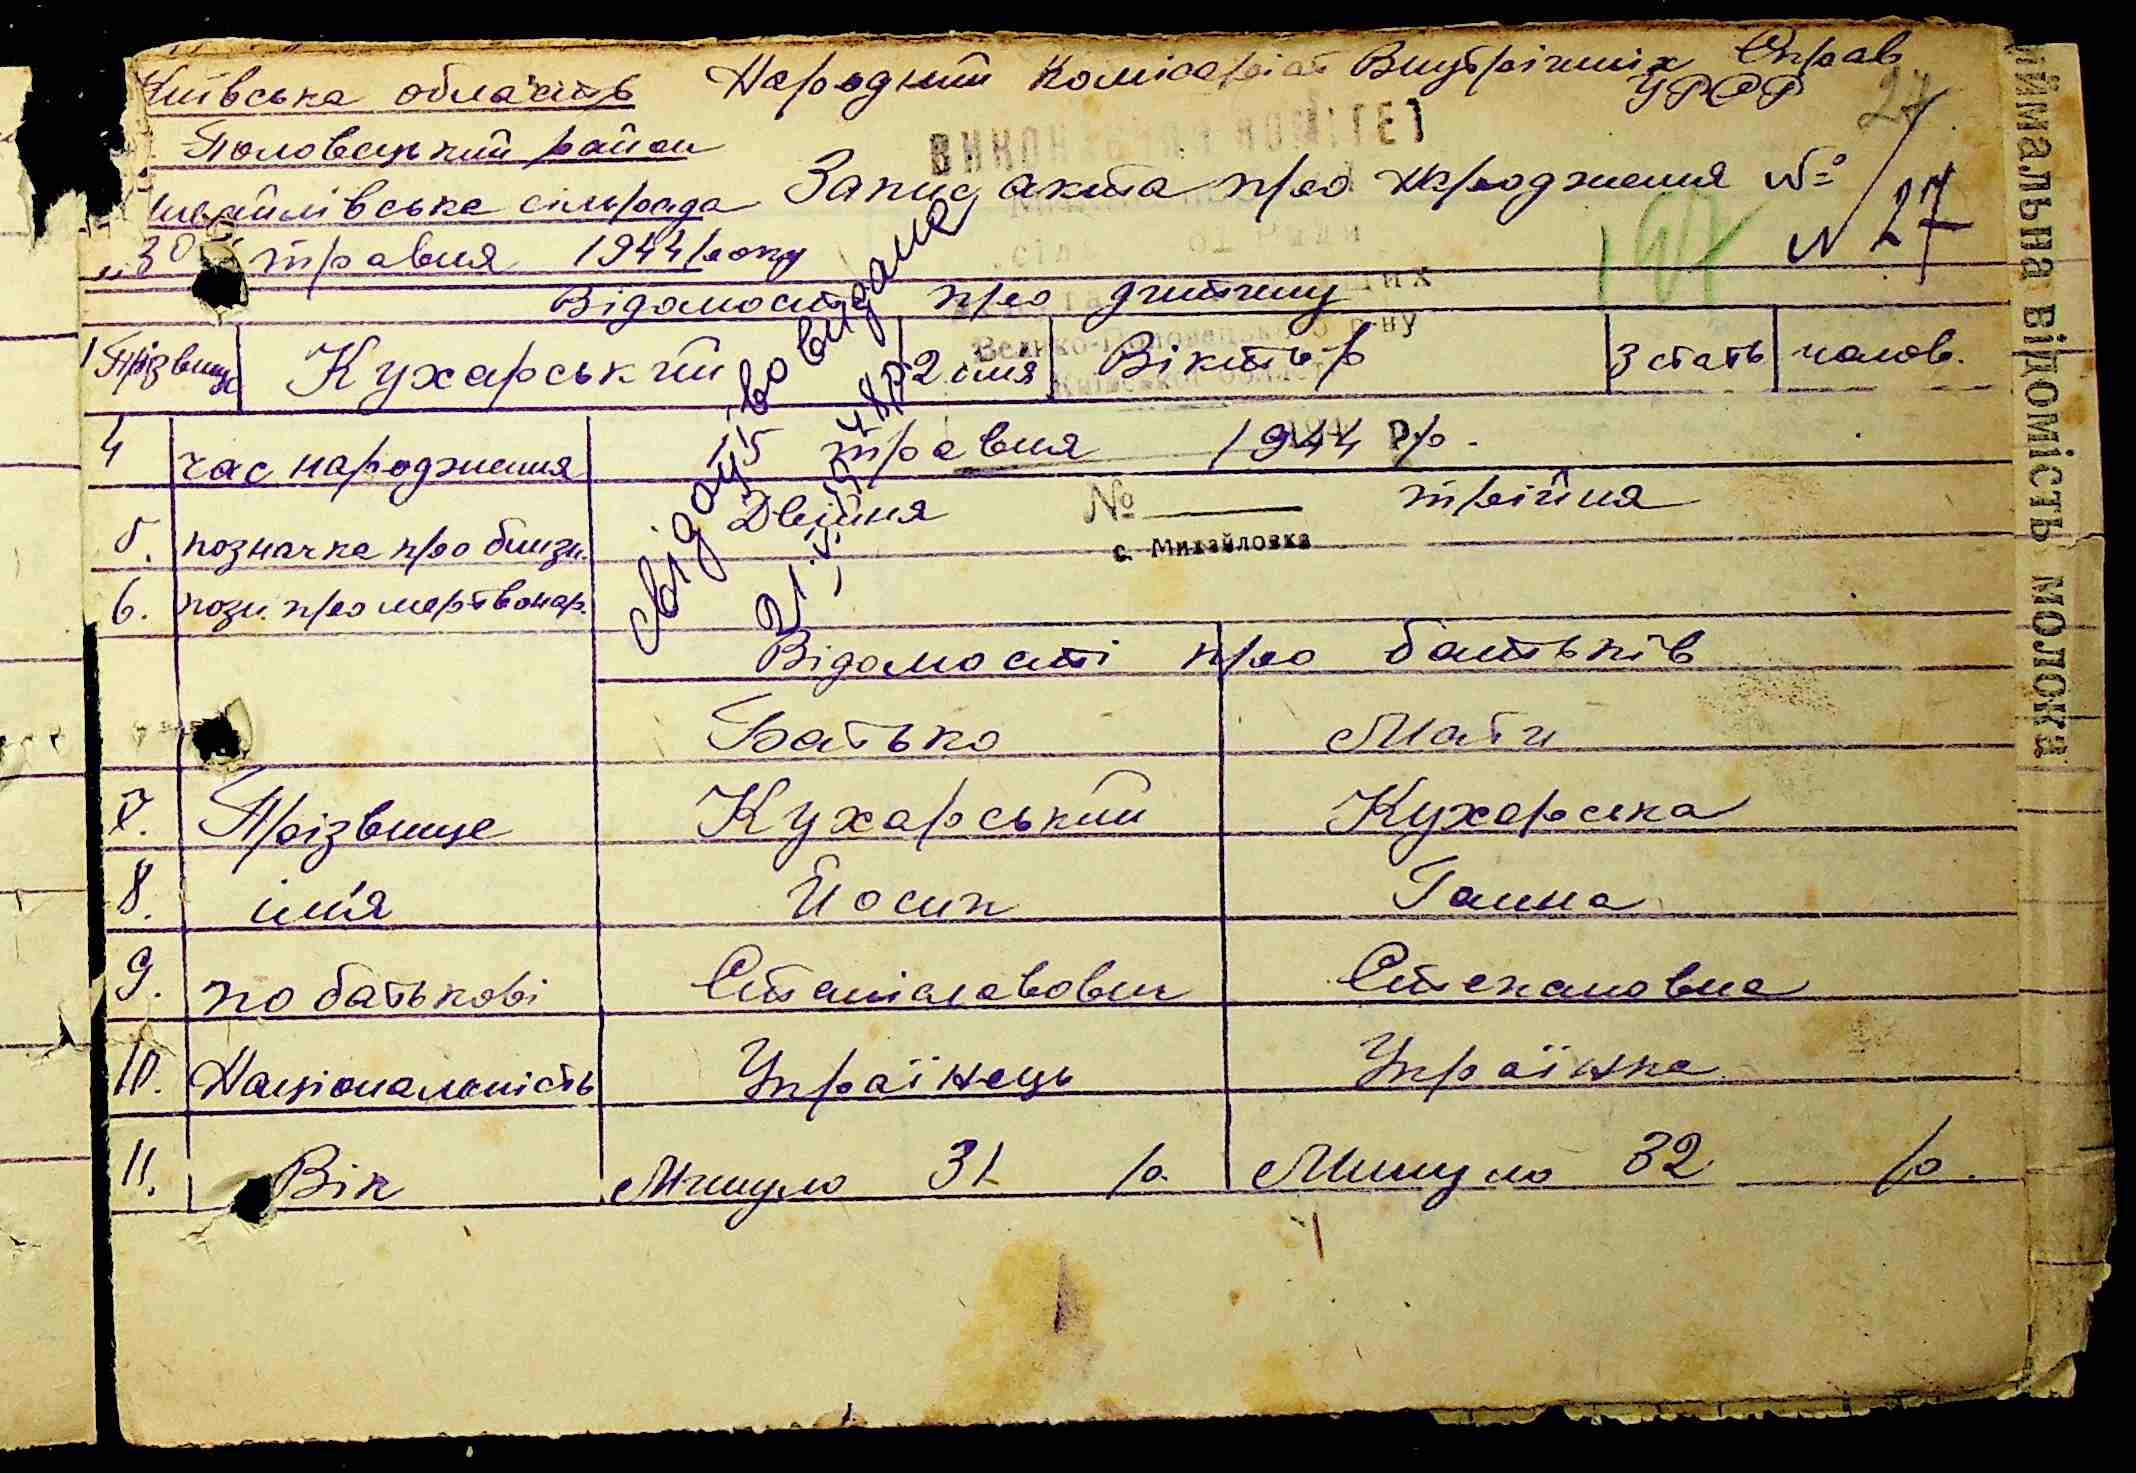 Київська область Народний Комісаріат Внутрішніх Справ
УРСР 27
Половецький район
ВИКОН КОМІТЕТ
михайлівська сільрада Запис акта про народження №
27
"30" травня 1944 року
Відомості про дитину
1 Прізвище Кухарський 2 імя Віктор 3 стать чолов.
Велико-Половецького р-ну
Київської області
4 час народження 15 травня 1944 р.
5. позначка про близн. Двійня № трійня
с. Михайловка
6. позн. про мертвонар.
свідоцтво видано
Відомості про батьків
Батько Мати
7. Прізвище Кухарський Кухарська
8. ім'я Йосип Ганна
9. по батькові Станіславович Степановна
10. Національність Українець Українка
11. Вік Минуло 31 р. Минуло 32 р.
ИЙМАЛЬНА ВІДОМІСТЬ МОЛОКА